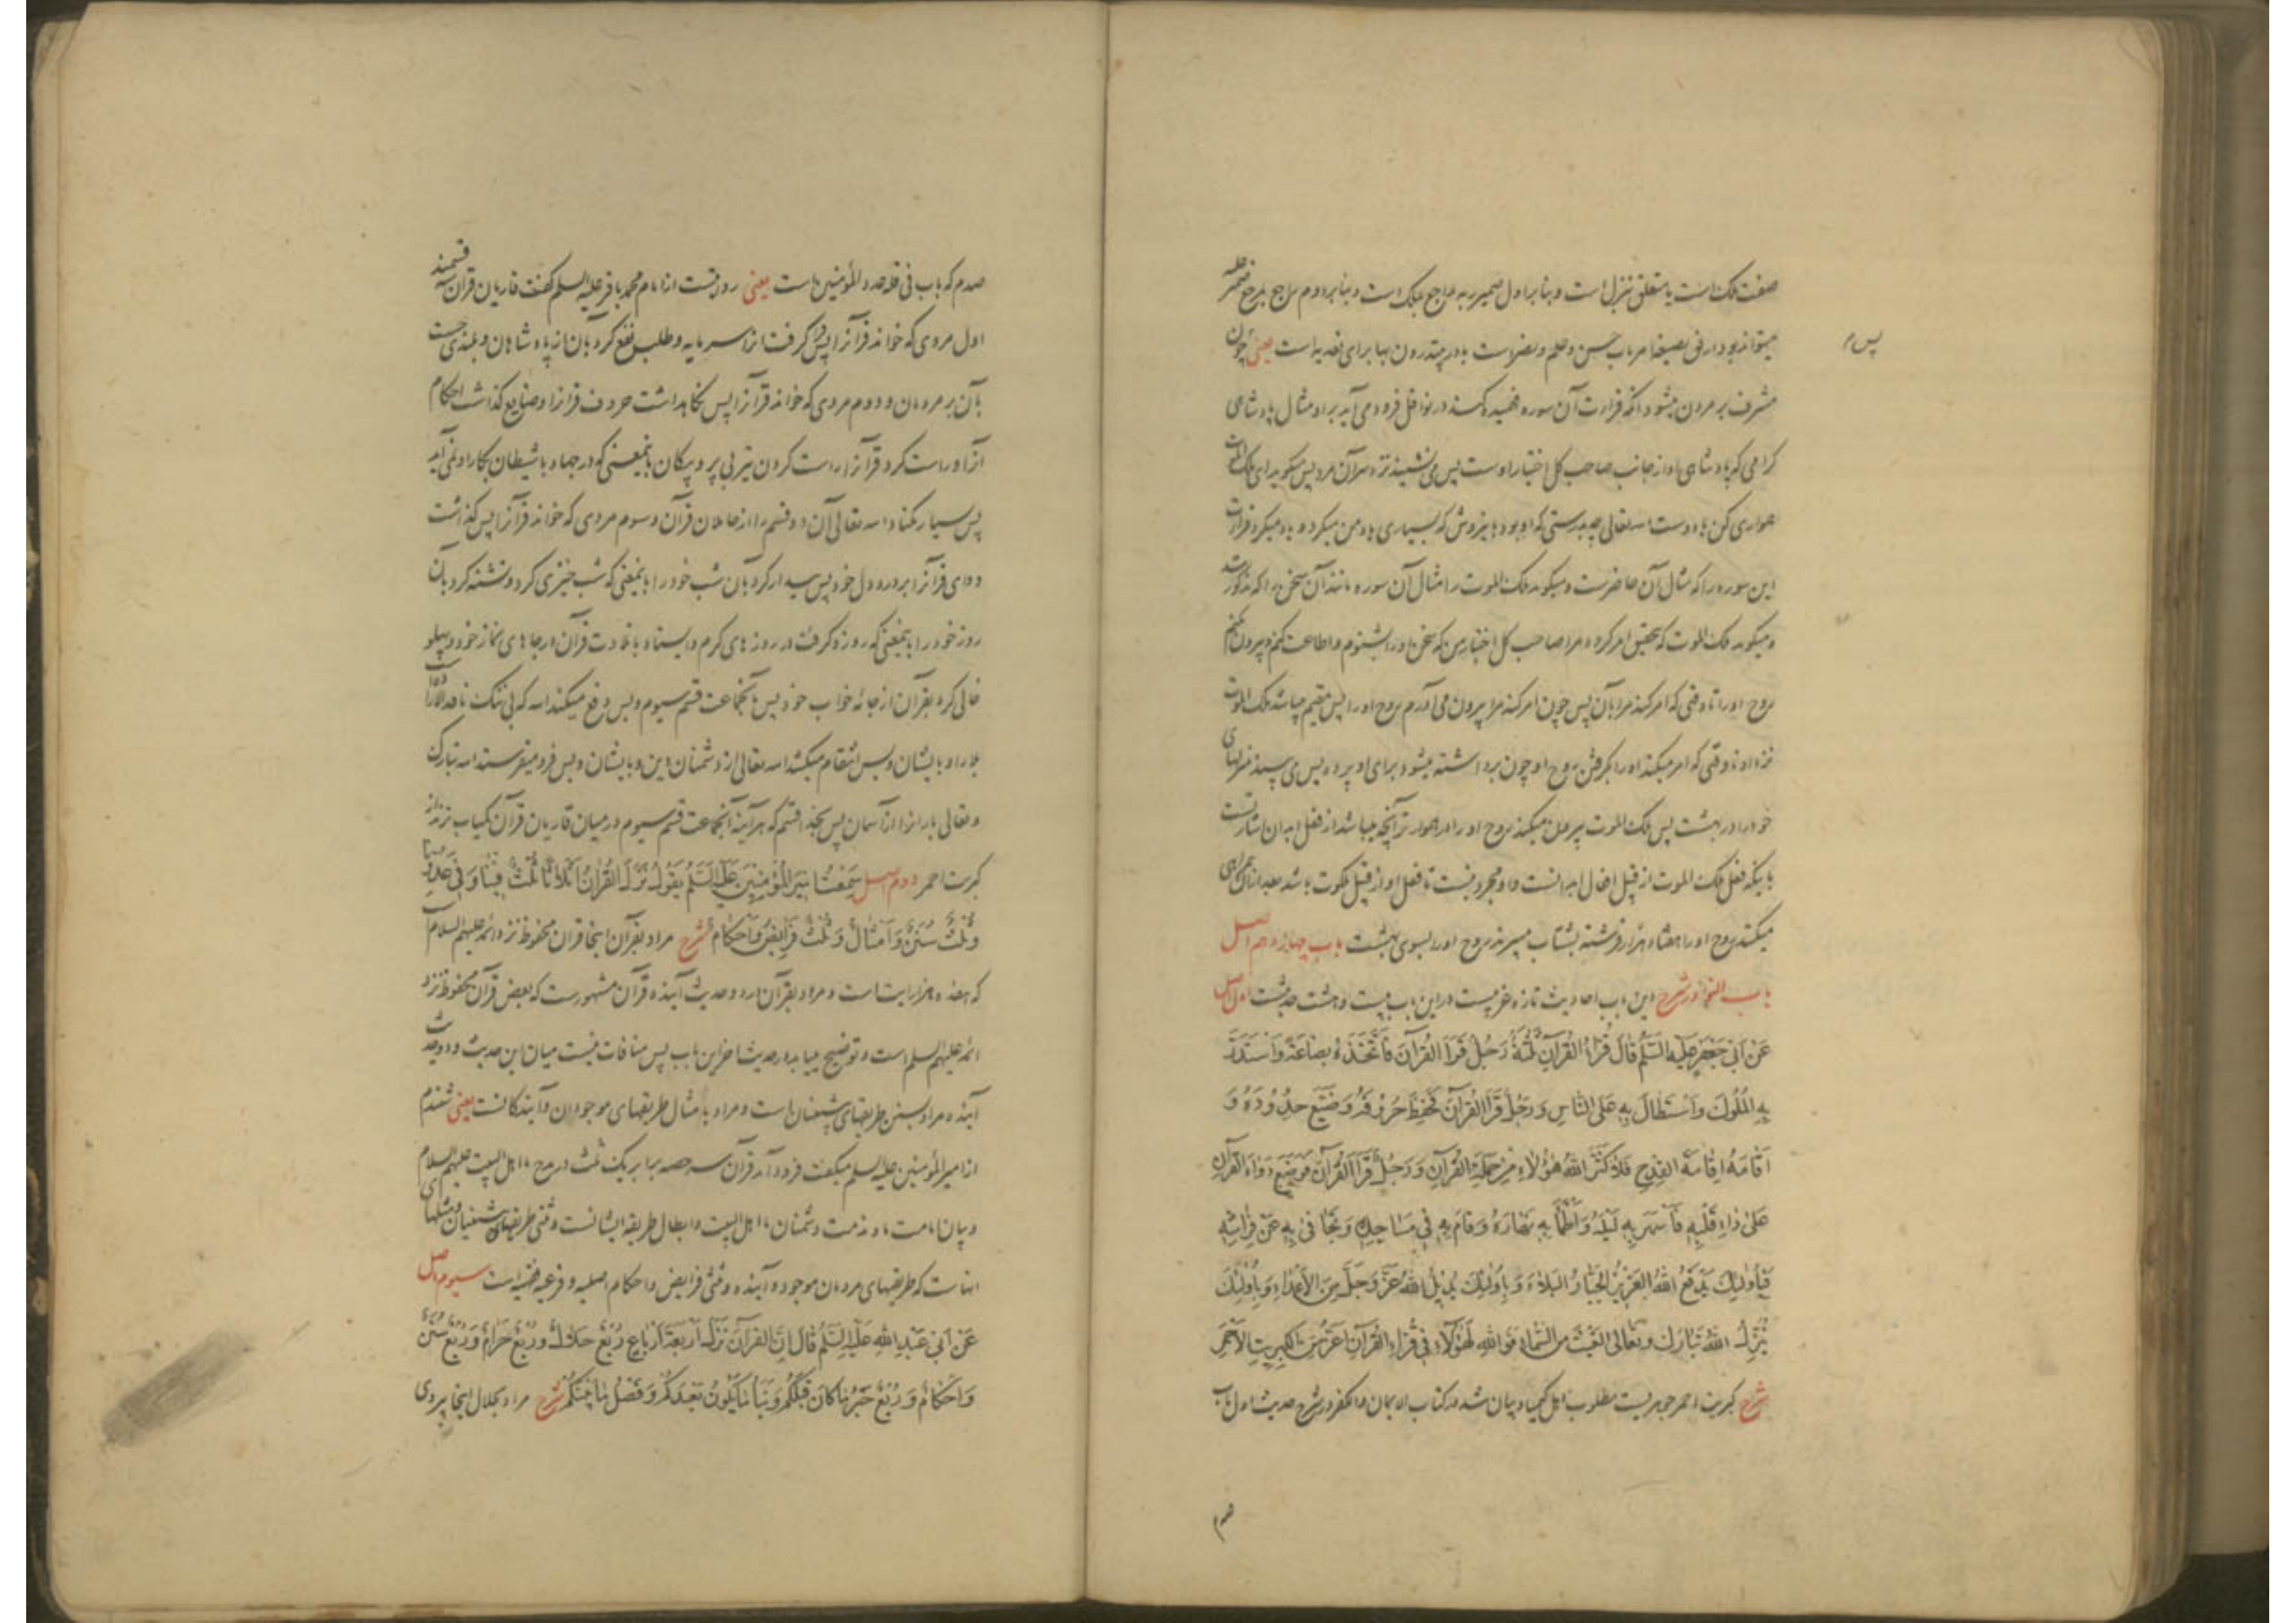 صفت ملک است یا متعلق بتنزل است و بنابر اول ضمیر به راجع بملک است و بنابر دوم راجع بمرجع ضمیر علیه
میتواند بود ارفق بصیغهٔ امر باب حسن و علم و نصر است با در بیرون بها برای تعدیه است یعنی چون
پس م
مشرف بر مردن میشود آنکه قرارت آن سوره فهمیده کند در نوافل فرود می آید بر او مثال پادشاهی
کرامی که پادشاهی او از جانب صاحب کل اختیار اوست پس می نشیند نزد سر آن مرد پس میکوید ای ملک الموت
همواری کن با دوست الله تعالی چه بدرستی که او بود بهره وش که بسیاری یاد من میکرد و یاد میکرد قرارت
این سوره را که مثال آن حاضرست و میکوید ملک الموت را مثال آن سوره مانند آن سخن را که مذکور شد
و میکوید ملک الموت که بتحقیق امر کرده مرا صاحب کل اختیار من که سخن او را بشنوم و اطاعت کنم و بیرون نکنم
روح او را تا وقتی که امر کند مرا بآن پس چون امر کند مرا بیرون می آورم روح او را پس مقیم میباشد ملک الموت
نزد او تا وقتی که امر میکند او را بگرفتن روح او چون برداشته میشود برای او پرده پس می بیند منزلهای
خود را در بهشت پس ملک الموت بیرون میکند روح او را در هموار تر آنچه میباشد از فعل ابدان اشارتست
باینکه فعل ملک الموت از قبیل افعال ابدانست و او مجرد نیست تا فعل او از قبیل ملکوت باشد بعد از آن همراهی
میکنند روح او را هفتاد هزار فرشته بشتاب میبرند روح او را بسوی بهشت باب چهاردهم اصل
باب النوادر شرح این باب احادیث تازه غریبست در این باب بیست و هشت حدیثست اول اصل
عَنْ اَبی جَعْفَرٍ عَلَیْهِ السَّلَمُ قَالَ قُرّاءُ الْقُرْآنِ ثَلٰثَةٌ رَجُلٌ قَرَأَ الْقُرْآنَ فَاتَّخَذَهُ بِضَاعَةً وَاسْتَدَرَّ
بِهِ الْمُلُوكَ وَاسْتَطَالَ بِهِ عَلَی النّاسِ وَرَجُلٌ قَرَأَ الْقُرْآنَ فَحَفِظَ حُرُوفَهُ وَضَیَّعَ حُدُودَهُ وَ
اَقَامَهُ اِقَامَةَ الْقِدْحِ فَلَا كَثَّرَ اللّٰهُ هٰؤُلَاءِ مِنْ حَمَلَةِ الْقُرْآنِ وَرَجُلٌ قَرَأَ الْقُرْآنَ فَوَضَعَ دَوَاءَ الْقُرْآنِ
عَلیٰ دَاءِ قَلْبِهِ فَاَسْهَرَ بِهِ لَیْلَهُ وَاَظْمَأَ بِهِ نَهَارَهُ وَقَامَ بِهِ فِی مَسَاجِدِهِ وَتَجَافیٰ بِهِ عَنْ فِرَاشِهِ
فَبِاُولٰئِكَ یَدْفَعُ اللّٰهُ الْعَزِیزُ الْجَبَّارُ الْبَلَاءَ وَبِاُولٰئِكَ یُدِیلُ اللّٰهُ عَزَّ وَجَلَّ مِنَ الْاَعْدَاءِ وَبِاُولٰئِكَ
یُنَزِّلُ اللّٰهُ تَبَارَكَ وَتَعَالیٰ الْغَیْثَ مِنَ السَّمَاءِ فَوَاللّٰهِ لَهٰؤُلَاءِ فِی قُرّاءِ الْقُرْآنِ اَعَزُّ مِنَ الْكِبْرِیتِ الْاَحْمَرِ
شرح کبریت احمر جوهریست مطلوب اهل کیمیا و بیان شد در کتاب الایمان والکفر در شرح حدیث اول باب
صدم که باب فی قلة عدد المؤمنین است یعنی روایتست از امام محمد باقر علیه السلم گفت قاریان قرآن سه قسمند
اول مردی که خواند قرآن را پس فرا گرفت آن را سرمایه و طلب نفع کرد بآن از پادشاهان و بلندی جست
بآن بر مردمان و دوم مردی که خواند قرآن را پس نگاهداشت حروف قرآن را و ضایع گذاشت احکام
آن را و راست کرد قرآن را راست کردن تیر بی پر و پیکان باینمعنی که در جهاد با شیطان بکار او نمی آید
پس بسیار مکناد الله تعالی آن دو قسم را از حاملان قرآن و سوم مردی که خواند قرآن را پس گذاشت
دوای قرآن را بر درد دل خود پس بیدار کرد بآن شب خود را باینمعنی که شب خیزی کرد و تشنه کرد بآن
روز خود را باینمعنی که روزه گرفت در روزهای گرم و ایستاد با تلاوت قرآن در جاهای نماز خود و پهلو
خالی کرد بقرآن از جامهٔ خواب خود پس بآنجماعت قسم سیوم و بس دفع میکند الله که بی ننگ نافذ الاراده است
بلا را و بایشان و بس انتقام میکشد الله تعالی از دشمنان دین و بایشان و بس فرو میفرستد الله تبارک
و تعالی باران را از آسمان پس بخدا قسم که هرآینه آنجماعت قسم سیوم در میان قاریان قرآن کمیاب ترند از
کبریت احمر دوم اصل سَمِعْتُ اَمِیرَ الْمُؤْمِنِینَ عَلَیْهِ السَّلَمُ یَقُولُ نَزَلَ الْقُرْآنُ اَثْلَاثًا ثُلُثٌ فِینَا وَفِی عَدُوِّنَا
وَثُلُثٌ سُنَنٌ وَاَمْثَالٌ وَثُلُثٌ فَرَائِضُ وَاَحْكَامٌ شرح مراد بقرآن اینجا قرآن محفوظ نزد ائمه علیهم السلام است
که هفده هزار آیت است و مراد بقرآن در دو حدیث آینده قرآن مشهورست که بعض قرآن محفوظ نزد
ائمه علیهم السلم است و توضیح میباید در حدیث آخر این باب پس منافات نیست میان این حدیث و دو حدیث
آینده مراد بسنن طریقهای پیشینیان است و مراد بامثال طریقهای موجودان و آیندگانست یعنی شنیدم
از امیر المؤمنین علیه السلم میگفت فرود آمد قرآن سه حصه برابر یک ثلث در مدح ما اهل البیت علیهم السلام
و بیان امامت ما و مذمت دشمنان ما اهل البیت و ابطال طریقه ایشانست و ثلثی طریقهای پیشینیان و مثلهای
آنهاست که طریقهای مردمان موجود و آینده و ثلثی فرایض و احکام اصلیه و فرعیه فقهیه است سیوم اصل
عَنْ اَبی عَبْدِ اللّٰهِ عَلَیْهِ السَّلَمُ قَالَ اِنَّ الْقُرْآنَ نَزَلَ اَرْبَعَةَ اَرْبَاعٍ رُبْعٌ حَلَالٌ وَرُبْعٌ حَرَامٌ وَرُبْعٌ سُنَنٌ
وَاَحْكَامٌ وَرُبْعٌ خَبَرُ مَا كَانَ قَبْلَكُمْ وَنَبَأُ مَا یَكُونُ بَعْدَكُمْ وَفَصْلُ مَا بَیْنَكُمْ شرح مراد بحلال اینجا پیروی